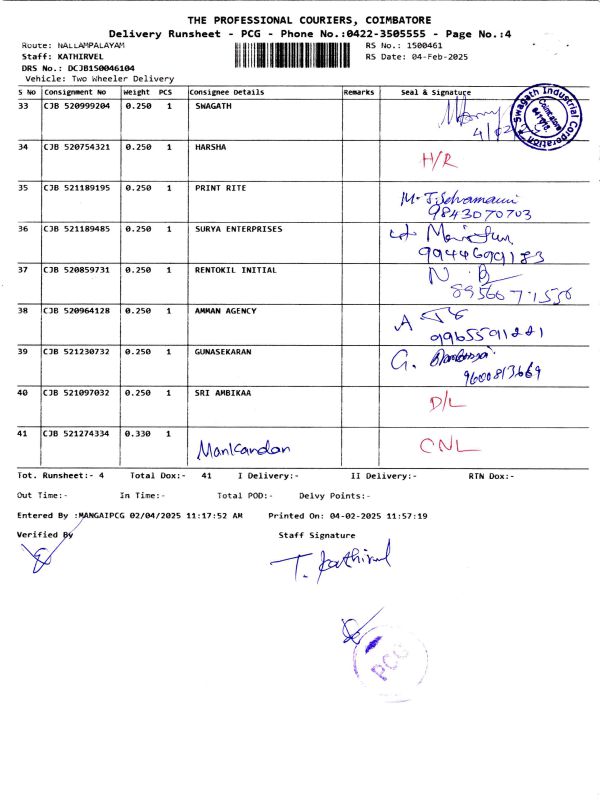 THE PROFESSIONAL COURIERS, COIMBATORE
Delivery Runsheet - PCG - Phone No.:0422-3505555 - Page No.:4
Route: NALLAMPALAYAM
RS No.: 1500461
Staff: KATHIRVEL
RS Date: 04-Feb-2025
DRS No.: DCJB150046104
Vehicle: Two Wheeler Delivery
S No Consignment No Weight PCS Consignee Details Remarks Seal & Signature
33 CJB 520999204 0.250 1 SWAGATH
Swagath Industrial Corporation
Coimbatore
34 CJB 520754321 0.250 1 HARSHA H/R
35 CJB 521189195 0.250 1 PRINT RITE M. J. Selvamani
9843070703
36 CJB 521189485 0.250 1 SURYA ENTERPRISES
37 CJB 520859731 0.250 1 RENTOKIL INITIAL
38 CJB 520964128 0.250 1 AMMAN AGENCY
9965591221
39 CJB 521230732 0.250 1 GUNASEKARAN G.
9600813669
40 CJB 521097032 0.250 1 SRI AMBIKAA D/L
41 CJB 521274334 0.330 1 Manikandan CNL
Tot. Runsheet:- 4 Total Dox:- 41 I Delivery:- II Delivery:- RTN Dox:-
Out Time:- In Time:- Total POD:- Delvy Points:-
Entered By :MANGAIPCG 02/04/2025 11:17:52 AM Printed On: 04-02-2025 11:57:19
Verified By Staff Signature
T. Kathirvel
PCG